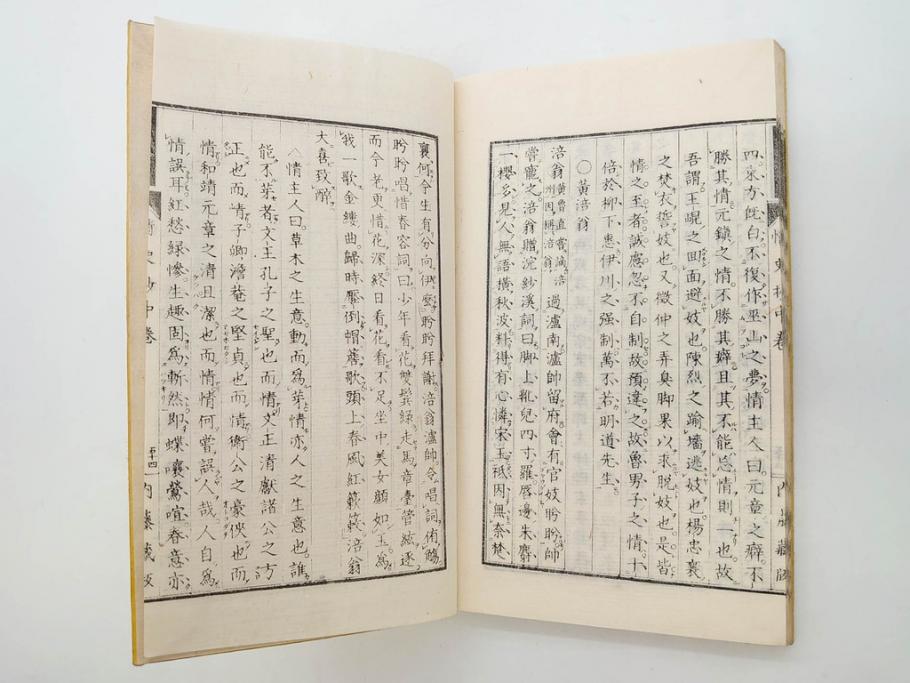 四來方既白不復作巫山之夢情主人曰元章之癖不
勝其情元鎮之情不勝其癖且其不能忘情則一也故
吾謂王琨之回面避妓也陳烈之踰墻逃妓也楊忠襄
之焚衣誓妓也又微仲之弄臭脚果以求脫妓也是皆
情之至者誠應忍不自制故預違之故魯男子之情十
倍於柳下惠伊川之强制萬不若明道先生
〇黃涪翁
涪翁黃魯直嘗謫涪州因稱涪翁過瀘南瀘帥留府會有官妓盼盼帥
嘗寵之涪翁贈浣紗溪詞曰脚上靴兒四寸羅唇邊朱麝
一櫻多見人無語橫秋波料得有心憐宋玉祗因無奈楚
襄何今生有分向伊麼盼盼拜謝涪翁瀘帥令唱詞侑觴
盼盼唱惜春容詞曰少年看花雙鬢綠走馬章臺管絃逐
而今老更惜花深終日看花看不足坐中美女顏如玉爲
我一歌金縷曲歸時壓倒帽簷欹頭上春風紅簌簌涪翁
大喜致醉
情主人曰草木之生意動而爲芽情亦人之生意也誰
能不芽者文王孔子之聖也而情文正清獻諸公之方
正也而情子卿澹菴之堅貞也而情衛公之豪俠也而
情和靖元章之清且潔也而情情何嘗誤人哉人自爲
情誤耳紅愁綠慘生趣固爲斬然即蝶嚷鶯喧春意亦
情史抄中卷
至十四
內藤藏板
中卷
內藤藏版